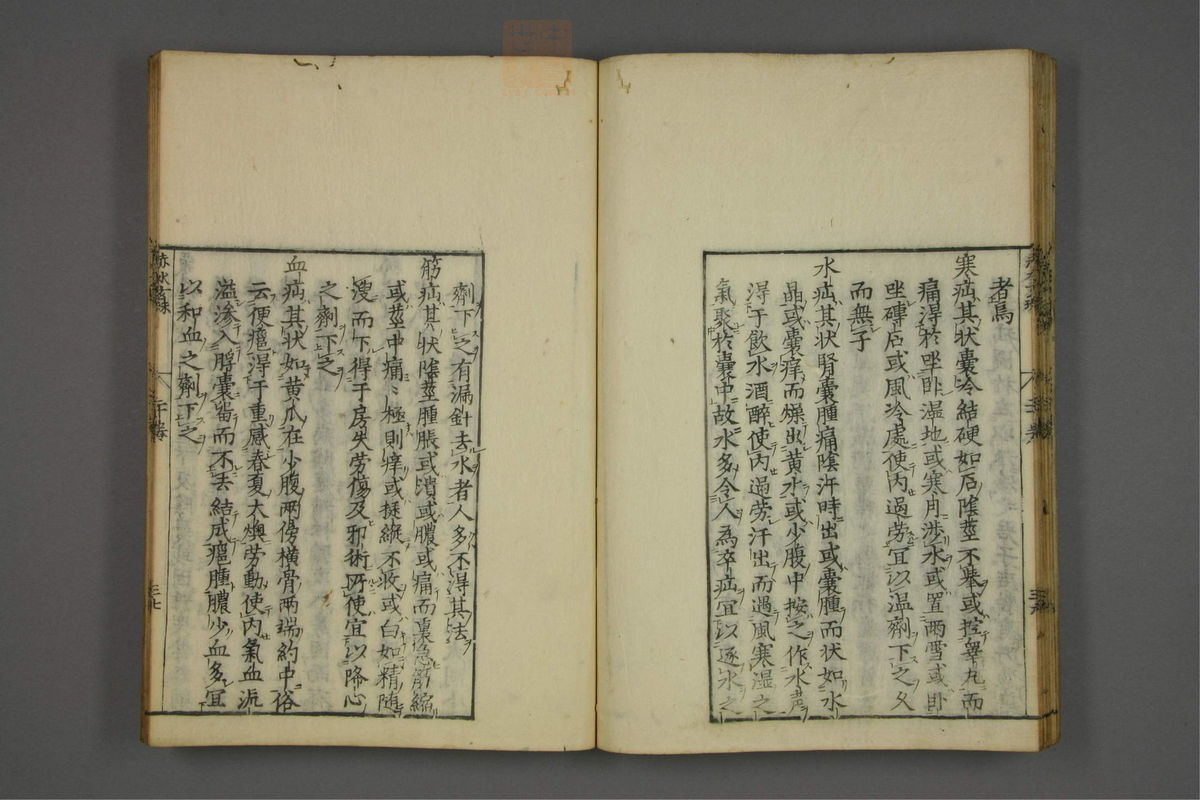 者焉
寒疝其状囊冷結硬如石陰莖不舉或控睾丸而
痛得於坐卧湿地或寒月渉水或置雨雪或卧
坐磚石或風冷處使内過労宜以温劑下之久
而無子
水疝其状腎囊腫痛陰汗時出或囊腫而状如水
晶或囊痒而燥出黄水或少腹中按之作水声
得于飲水酒醉使内過労汗出而遇風寒湿之
氣聚於囊中故水多令人為卒疝宜以逐水之
劑下之有漏針去水者人多不得其法
筋疝其状陰莖腫脹或潰或膿或痛而裏急筋縮
或莖中痛〻極則痒或挺縱不收或白如精随
溲而下得于房失労傷及邪術所使宜以降心
之劑下之
血疝其状如黄瓜在少腹两傍横骨两端約中俗
云便癰得于重感春夏大燠労動使内氣血流
溢滲入脬囊畄而不去結成癰腫膿少血多宜
以和血之劑下之